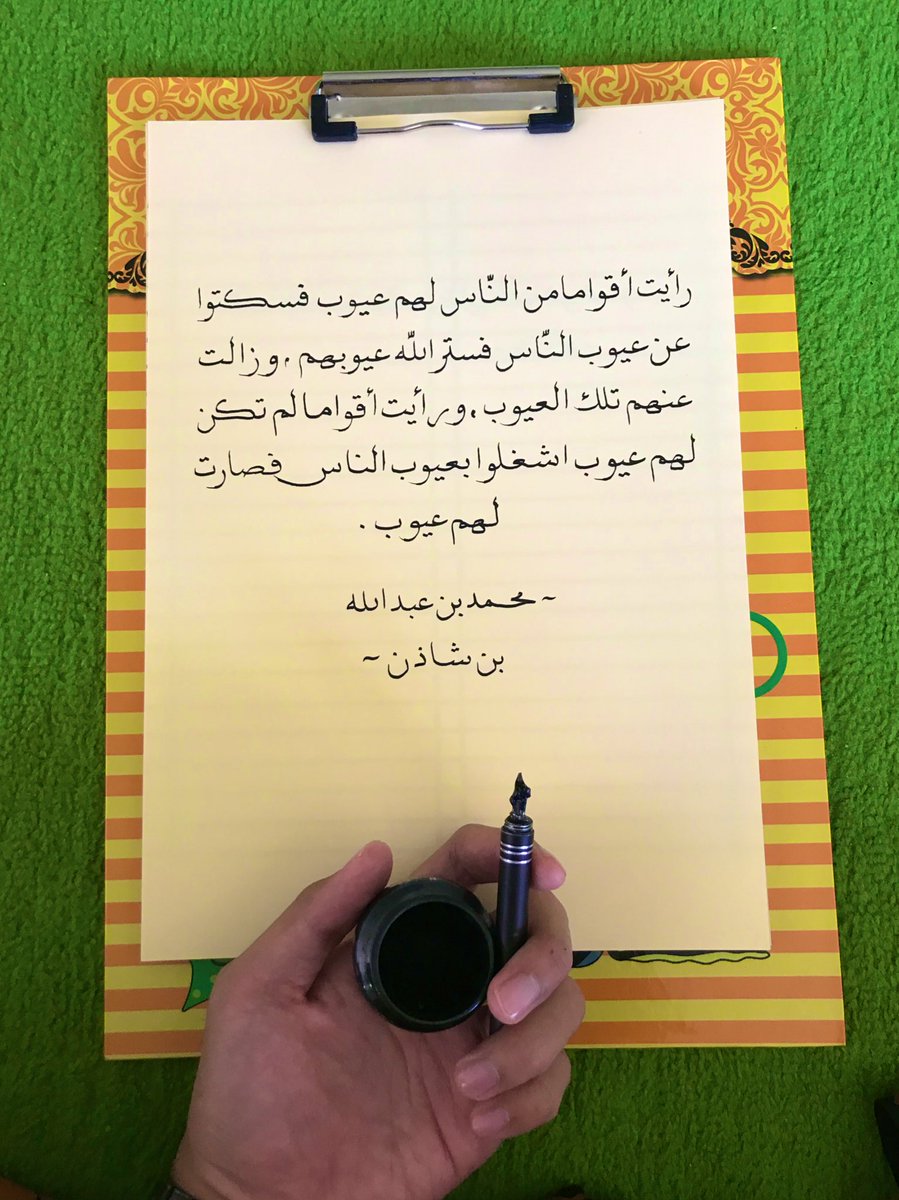 رأيت أقواما من النّاس لهم عيوب فسكتوا
عن عيوب النّاس فستر اللّه عيوبهم، وزالت
عنهم تلك العيوب، ورأيت أقواما لم تكن
لهم عيوب اشغلوا بعيوب الناس فصارت
لهم عيوب.
~ محمد بن عبد الله
بن شاذن ~